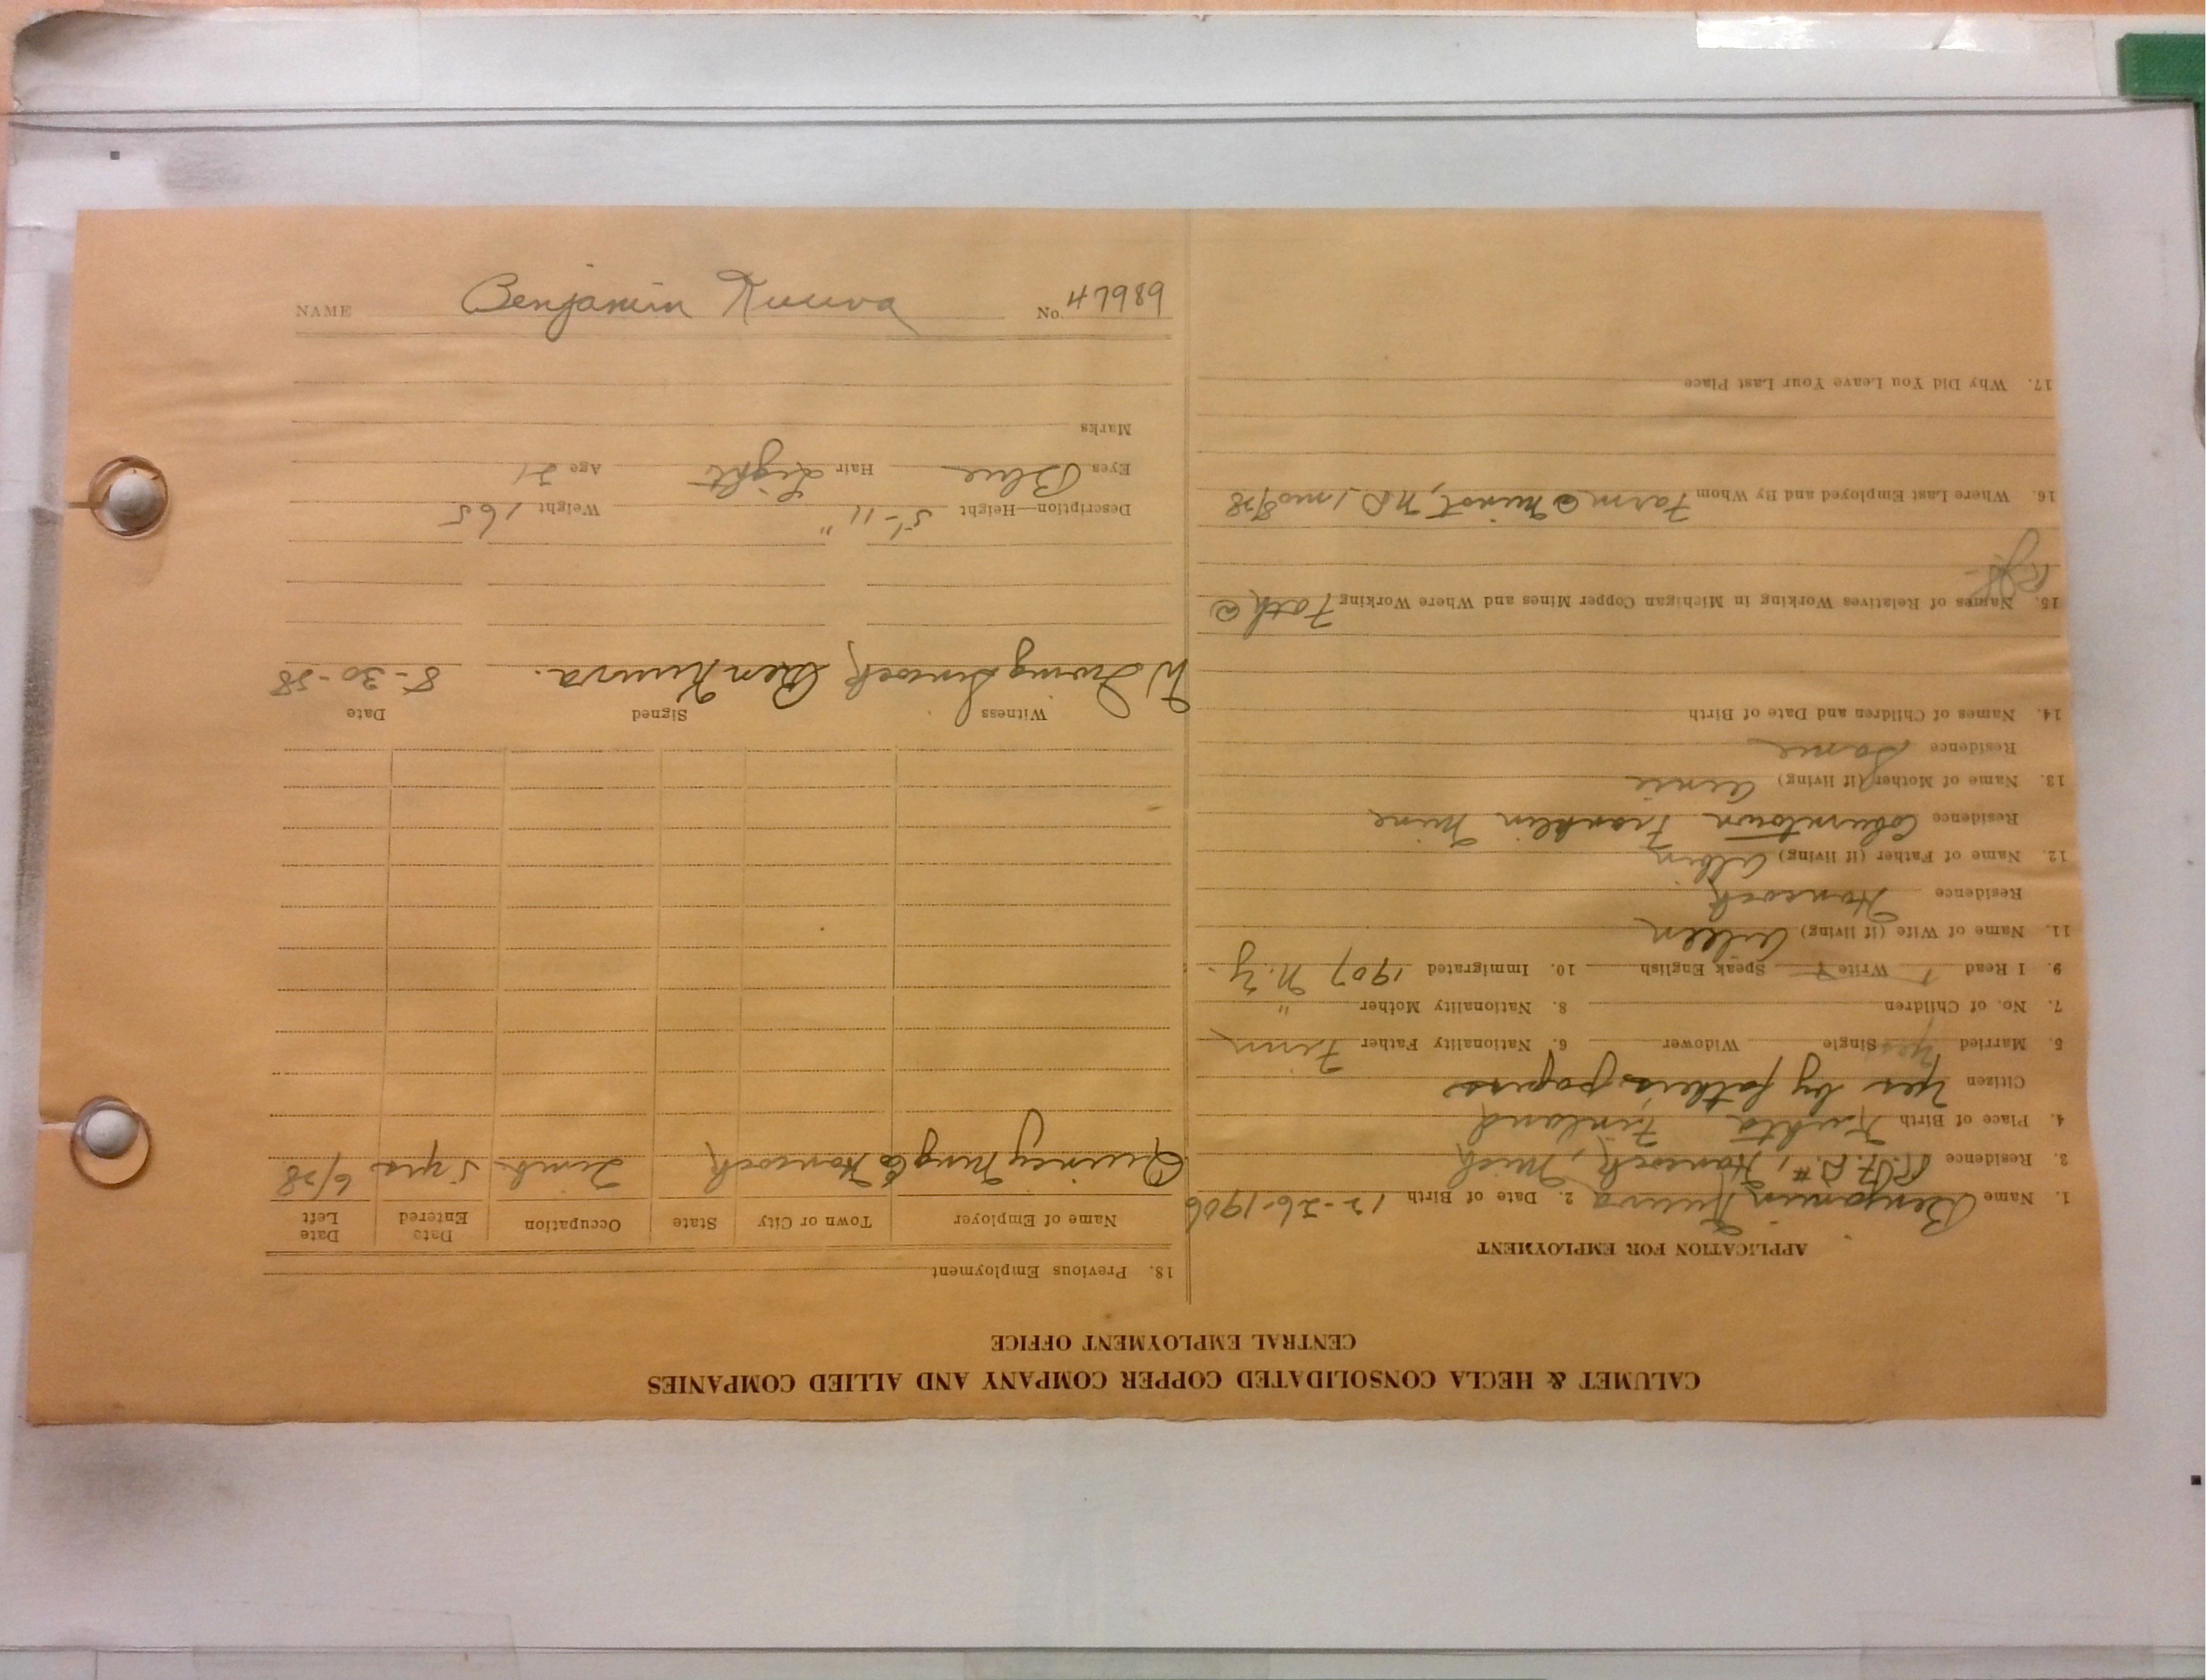 CALUMET & HECLA CONSOLIDATED COPPER COMPANY AND ALLIED COMPANIES
CENTRAL EMPLOYMENT OFFICE
APPLICATION FOR EMPLOYMENT
1. Name Benjamin Kuuva 2. Date of Birth 12-26-1906
3. Residence R.F.D. #1, Hancock, Mich
4. Place of Birth Finland
Citizen Yes by fathers papers
5. Married Yes Single Widower 6. Nationality Father Finn
7. No. of Children 8. Nationality Mother "
9. I Read Write Speak English 10. Immigrated 1907 N.Y.
11. Name of Wife (if living) Aileen
Residence Hancock
12. Name of Father (if living) Albin
Residence Coburntown Franklin Mine
13. Name of Mother (if living)
Residence Same
14. Names of Children and Date of Birth
15. Names of Relatives Working in Michigan Copper Mines and Where Working Fath @
16. Where Last Employed and By Whom Farm @ Minot, N.D. 1 mo 8/28
17. Why Did You Leave Your Last Place
18. Previous Employment
Name of Employer Town or City State Occupation Date Entered Date Left
Quincy Mng Co Hancock Timb. 5 yrs 6/28
Witness Signed Date
W Irving Ben Kuuva. 8-30-28
Description—Height 5'-11" Weight 165
Eyes Blue Hair Light Age 21
Marks
NAME Benjamin Kuuva No. 47989